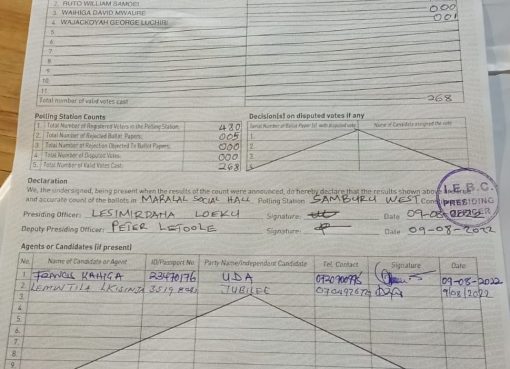 2. RUTO WILLIAM SAMOEI
3. WAIHIGA DAVID MWAURE 000
4. WAJACKOYAH GEORGE LUCHIRI 001
5.
6.
7.
8.
9.
10.
11.
Total number of valid votes cast 268
Polling Station Counts
1. Total Number of Registered Voters in the Polling Station: 480
2. Total Number of Rejected Ballot Papers: 005
3. Total Number of Rejection Objected To Ballot Papers: 000
4. Total Number of Disputed Votes: 000
5. Total Number of Valid Votes Cast 268
Decision(s) on disputed votes if any
Serial Number of Ballot Paper (s) with disputed vote Name of Candidate assigned the vote
1.
2.
3.
Declaration
We, the undersigned, being present when the results of the count were announced, do hereby declare that the results shown above
and accurate count of the ballots in MARALAL SOCIAL HALL Polling Station SAMBURU WEST
I.E.B.C.
PRESIDING
Presiding Officer: LESIMIRDANA LOEKU Signature: Date 09-08-
Deputy Presiding Officer: PETER LETOOLE Signature: Date 09-08-2022
Agents or Candidates (if present)
No. Name of Candidate or Agent ID/Passport No. Party Name/Independent Candidate Tel. Contact Signature Date
1. FRANCIS KAIHIGA 23470176 UDA 09-08-2022
2. JUBILEE 9/08/2022
3.
4.
5.
6.
7.
8.
9.